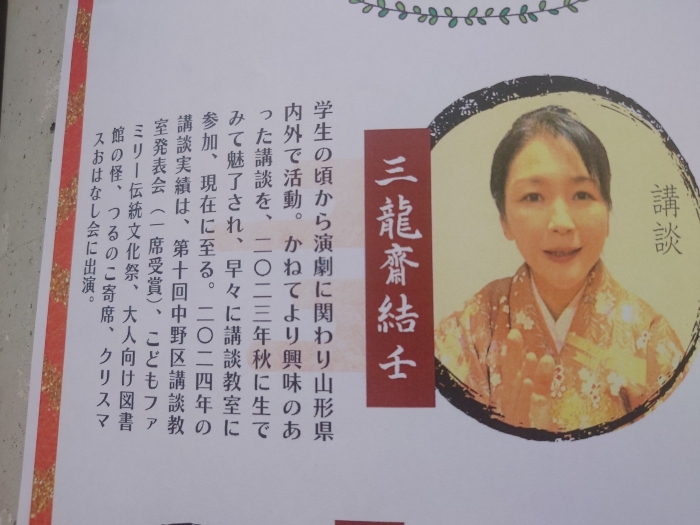 講談
三龍齋結壬
学生の頃から演劇に関わり山形県
内外で活動。かねてより興味のあ
った講談を、二〇二三年秋に生で
みて魅了され、早々に講談教室に
参加、現在に至る。二〇二四年の
講談実績は、第十回中野区講談教
室発表会（一席受賞）、こどもファ
ミリー伝統文化祭、大人向け図書
館の怪、つるのこ寄席、クリスマ
スおはなし会に出演。